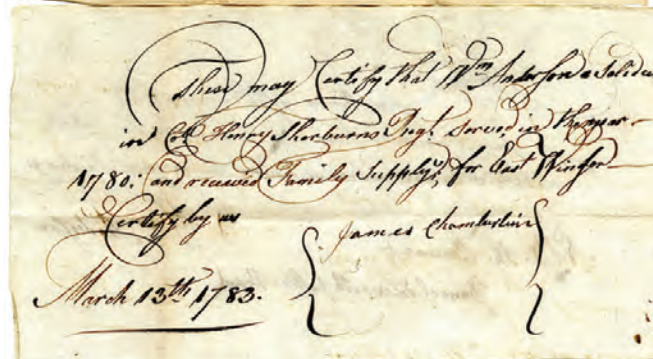 These may Certify that Wm Anderson a Solider
in Coll Henry Sherburns Regt. Served in the year
1780: and receved Family Supplys, for East Winsor
Certify by us
James Chamberlin
March 13th 1783.